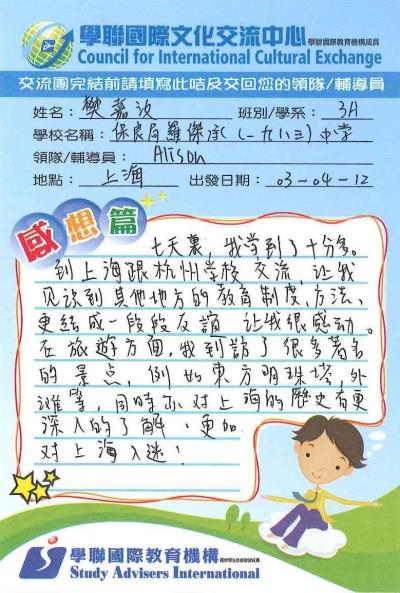 學聯國際文化交流中心 學聯國際教育機構成員
Council for International Cultural Exchange
交流團完結前請填寫此咭及交回您的領隊/輔導員
姓名：樊嘉汶 班別/學系：3A
學校名稱：保良局羅傑承(一九八三)中学
領隊/輔導員：Alison
地點：上海 出發日期：03-04-12
感想篇
七天裏，我学到了十分多。
到上海跟杭州学校交流，让我
见识到其他地方的教育制度、方法、
更结成一段段友誼，让我很感动。
在旅遊方面，我到訪了很多著名
的景点，例如東方明珠塔，外
灘等，同時亦对上海的歷史有更
深入的了解，更加
对上海入迷！
學聯國際教育機構
Study Advisers International